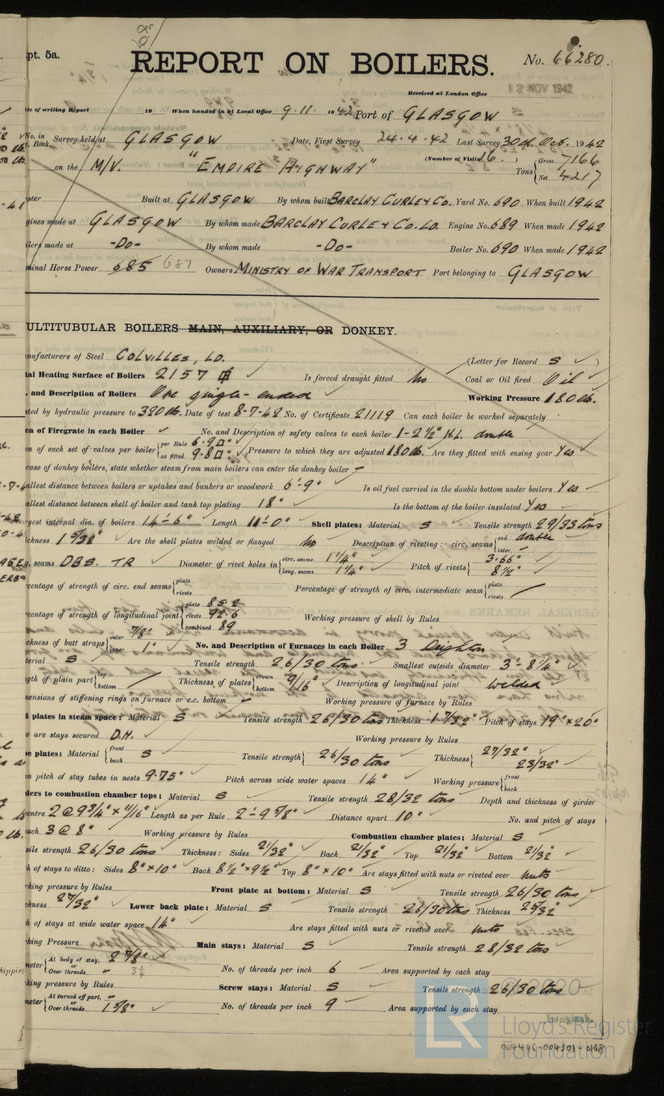 pt. 5a.
REPORT ON BOILERS.
No. 66280.
Received at London Office
12 NOV 1942
te of writing Report 19 When handed in at Local Office 9.11. 1942 Port of GLASGOW
No. in Survey held at GLASGOW Date, First Survey 24.4.42 Last Survey 30th Oct. 1942
Book.
on the M/V. "EMPIRE HIGHWAY" (Number of Visits 16.) Tons { Gross 7166 Net 4217
Built at GLASGOW By whom built BARCLAY CURLE & Co. Yard No. 690 When built 1942
gines made at GLASGOW By whom made BARCLAY CURLE & Co. LD. Engine No. 689 When made 1942
ilers made at -Do- By whom made -Do- Boiler No. 690 When made 1942
minal Horse Power 685 687 Owners MINISTRY OF WAR TRANSPORT Port belonging to GLASGOW
ULTITUBULAR BOILERS MAIN, AUXILIARY, OR DONKEY.
nufacturers of Steel COLVILLES, LD. (Letter for Record S)
tal Heating Surface of Boilers 2157 Is forced draught fitted No Coal or Oil fired Oil
and Description of Boilers One single-ended Working Pressure 180 lb.
ted by hydraulic pressure to 320 lb. Date of test 8-7-42 No. of Certificate 21119 Can each boiler be worked separately
ea of Firegrate in each Boiler No. and Description of safety valves to each boiler 1-2½" H.L. double
ea of each set of valves per boiler { per Rule 6.9 □" as fitted 9.8 □" Pressure to which they are adjusted 180 lb. Are they fitted with easing gear Yes
case of donkey boilers, state whether steam from main boilers can enter the donkey boiler -
allest distance between boilers or uptakes and bunkers or woodwork 6'-9" Is oil fuel carried in the double bottom under boilers Yes
allest distance between shell of boiler and tank top plating 18" Is the bottom of the boiler insulated Yes
rgest internal dia. of boilers 14'-6" Length 11'-0" Shell plates: Material S Tensile strength 29/33 tons
ickness 1 5/32" Are the shell plates welded or flanged No Description of riveting: circ. seams { end double inter.
g. seams DBS. TR Diameter of rivet holes in { circ. seams 1¼" long. seams 1¼" Pitch of rivets { 3.66" 8½"
rcentage of strength of circ. end seams { plate rivets Percentage of strength of circ. intermediate seam { plate rivets
rcentage of strength of longitudinal joint { plate 85.2 rivets 92.6 combined 89 Working pressure of shell by Rules
ickness of butt straps { outer 7/8" inner 1" No. and Description of Furnaces in each Boiler 3 Deighton
terial S Tensile strength 26/30 tons Smallest outside diameter 3'-8¼"
gth of plain part { top bottom Thickness of plates { crown bottom 9/16" Description of longitudinal joint welded
mensions of stiffening rings on furnace or c.c. bottom Working pressure of furnace by Rules
d plates in steam space: Material S Tensile strength 26/30 tons Thickness 1 7/32" Pitch of stays 19" x 20"
w are stays secured D.N. Working pressure by Rules
be plates: Material { front back S Tensile strength { 26/30 tons Thickness { 27/32" 23/32"
n pitch of stay tubes in nests 9.75" Pitch across wide water spaces 14" Working pressure { front back
ders to combustion chamber tops: Material S Tensile strength 28/32 tons Depth and thickness of girder
entre 2 @ 9¾" x 11/16" Length as per Rule 2'-9 7/8" Distance apart 10" No. and pitch of stays
each 3 @ 8" Working pressure by Rules Combustion chamber plates: Material S
sile strength 26/30 tons Thickness: Sides 21/32" Back 21/32" Top 21/32" Bottom 21/32"
h of stays to ditto: Sides 8" x 10" Back 8½" x 9½" Top 8" x 10" Are stays fitted with nuts or riveted over nuts
rking pressure by Rules Front plate at bottom: Material S Tensile strength 26/30 tons
ckness 27/32" Lower back plate: Material S Tensile strength 26/30 tons Thickness 25/32"
h of stays at wide water space 14" Are stays fitted with nuts or riveted over nuts
rking Pressure Main stays: Material S Tensile strength 28/32 tons
meter { At body of stay, or Over threads 2 7/8" 3¼ No. of threads per inch 6 Area supported by each stay
rking pressure by Rules Screw stays: Material S Tensile strength 26/30 tons
meter { At turned off part, or Over threads 1 5/8" No. of threads per inch 9 Area supported by each stay
LR Lloyd's Register
Foundation
004496-004501-0168